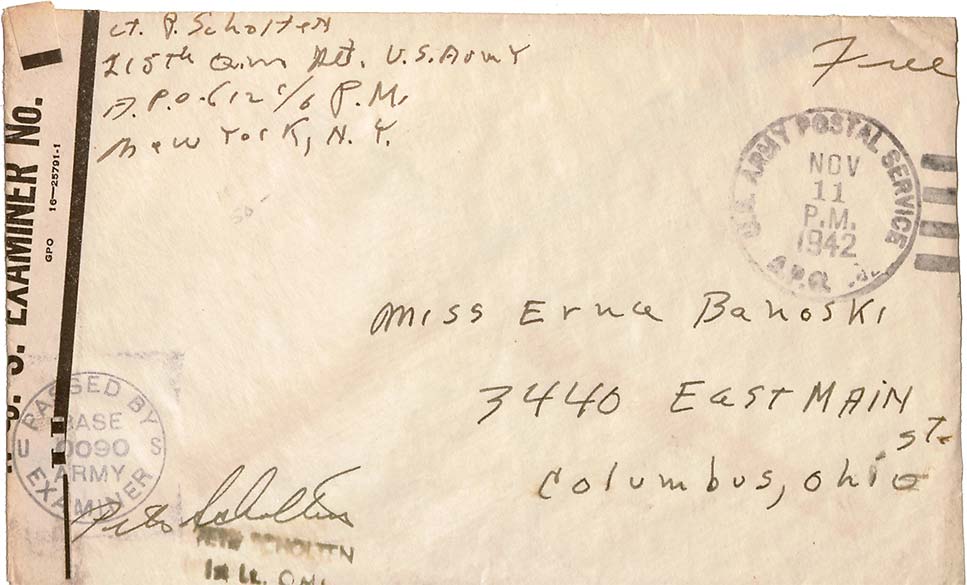 Lt. P. Scholten
218th Q.M. Det. U.S. Army
A.P.O. 612 c/o P.M.
New York, N.Y.
Free
U.S. ARMY POSTAL SERVICE
NOV
11
P.M.
1942
A.P.O.
Miss Erna Banoski
3440 East MAIN
St.
Columbus, Ohio
U. S. EXAMINER No.
GPO 16—25791-1
PASSED BY
BASE
U 0090 S
ARMY
EXAMINER
Pete Scholten
PETE SCHOLTEN
1st Lt. QMC